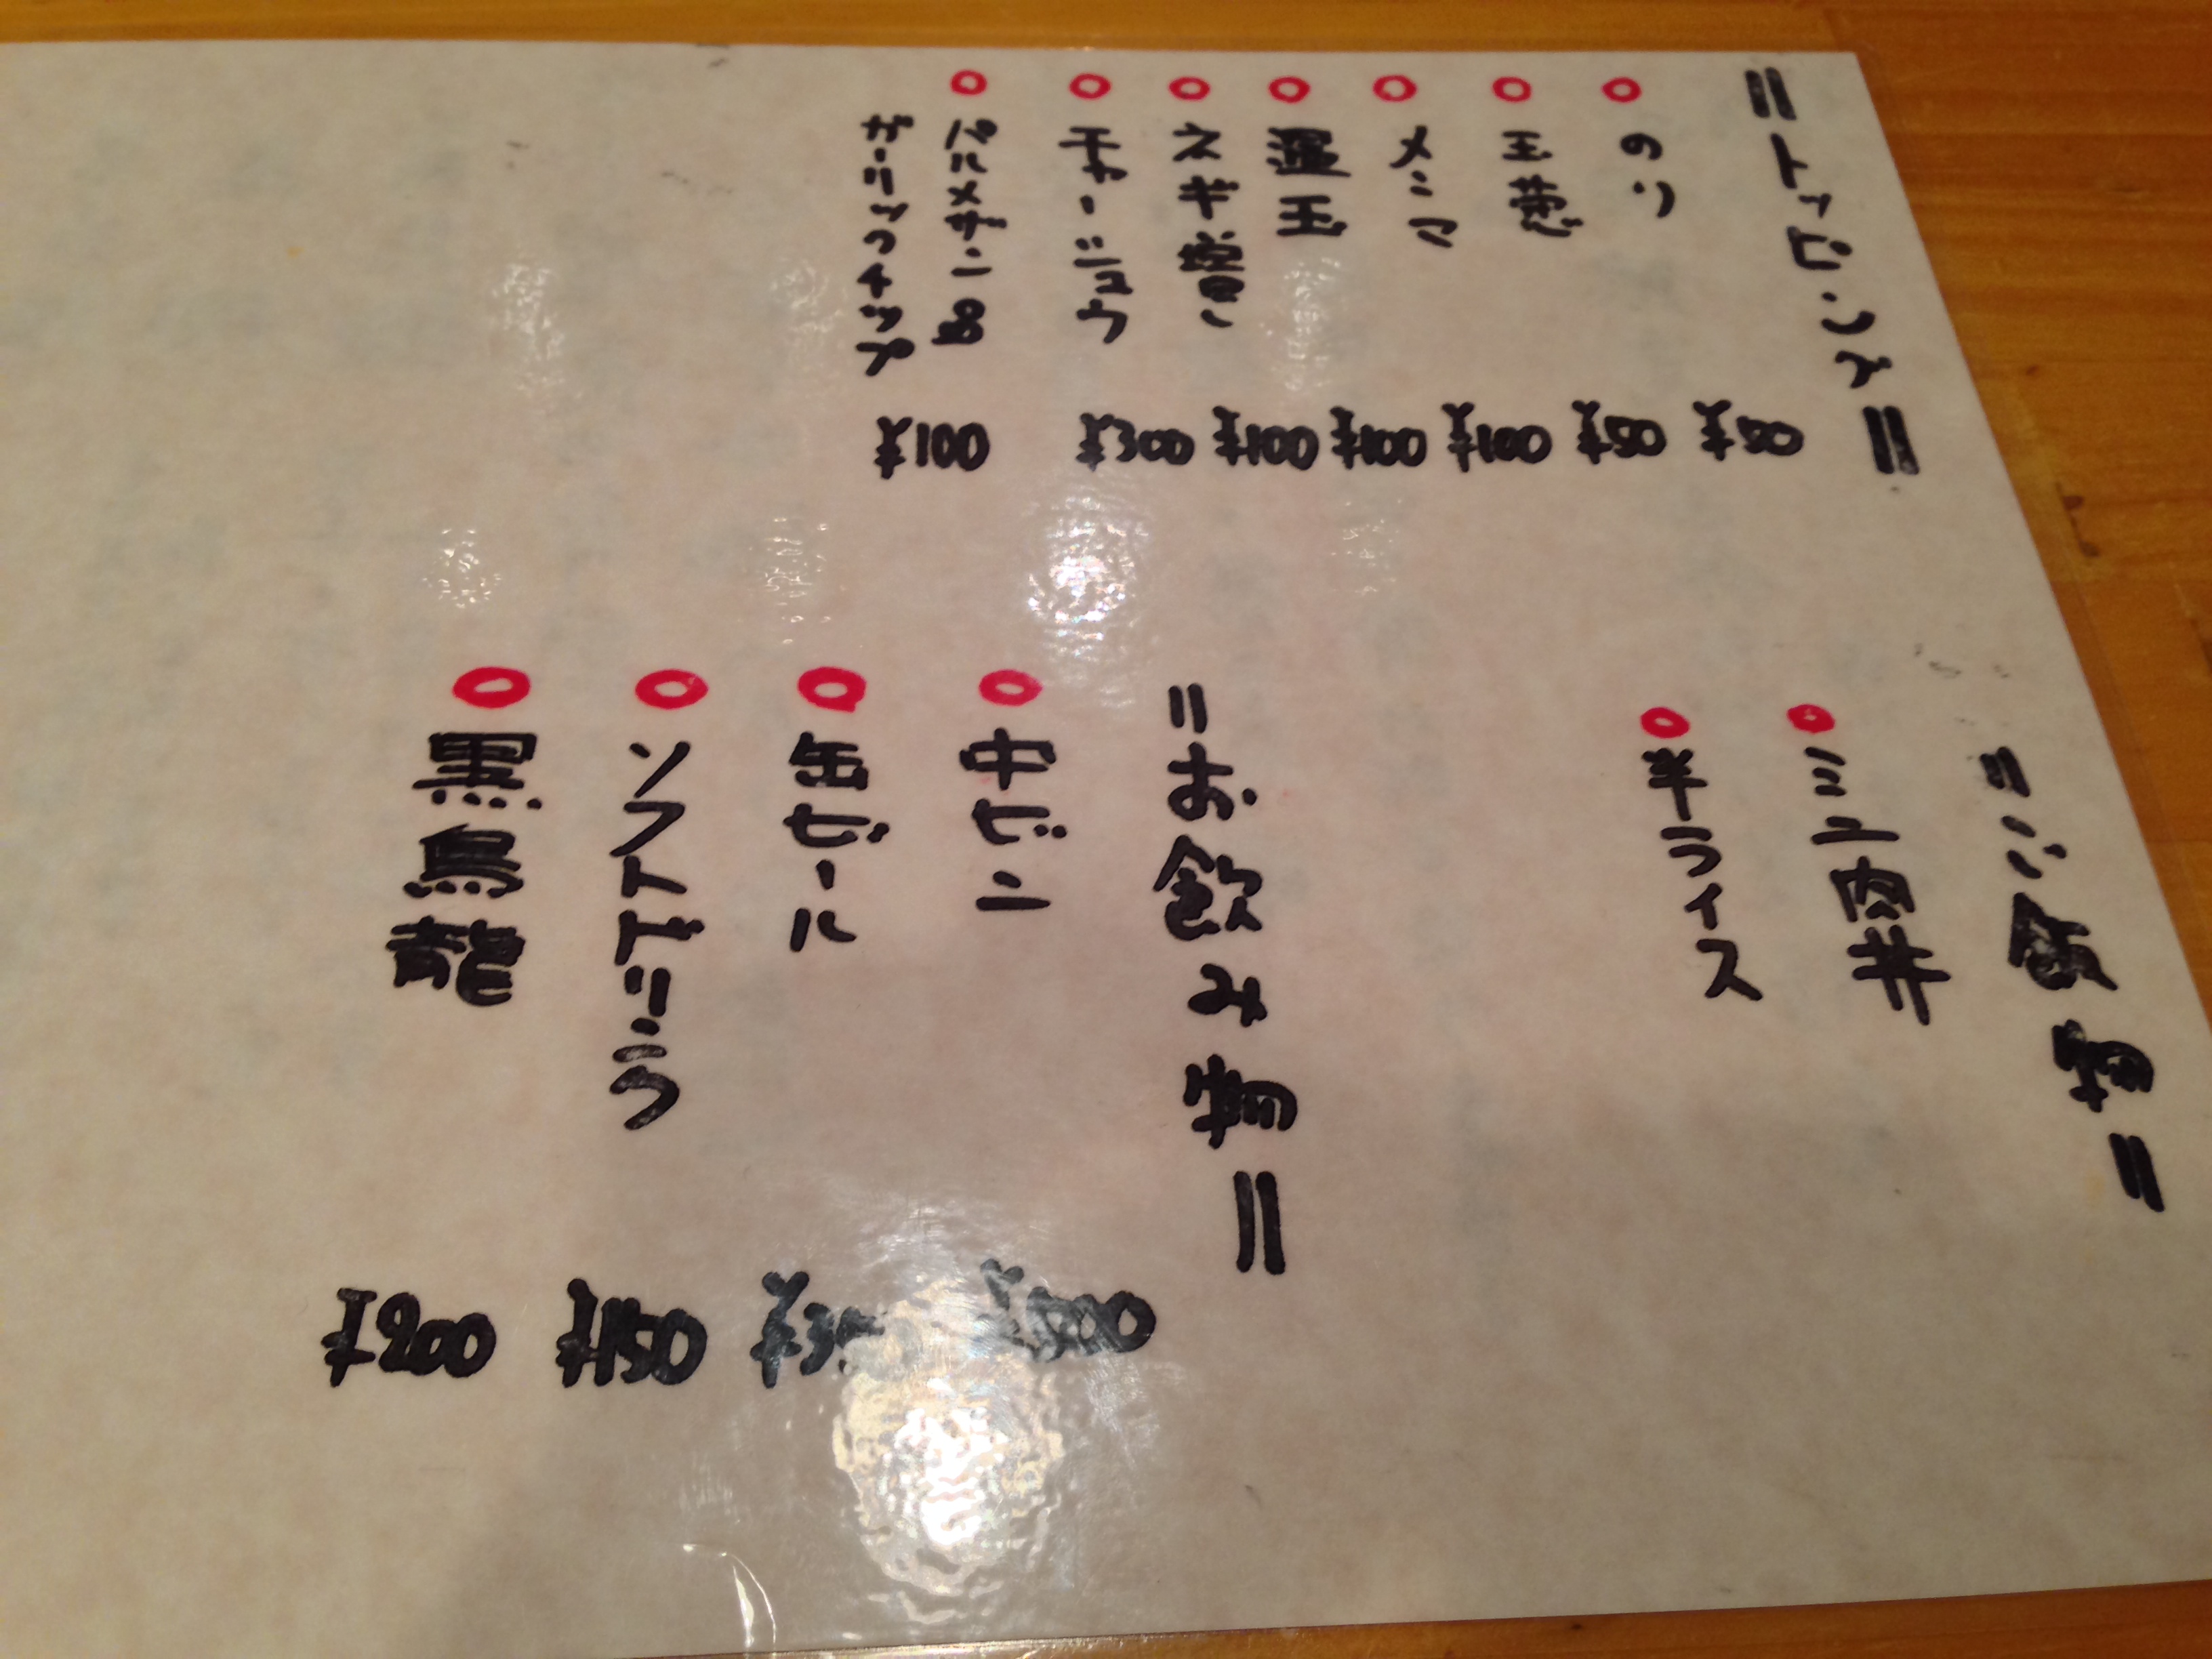 =トッピング=
のり ¥50
玉葱 ¥50
メンマ ¥100
温玉 ¥100
ネギ増し ¥100
チャーシュウ ¥300
パルメザン&
ガーリックチップ ¥100
=ご飯物=
ミニ肉丼
半ライス
=お飲み物=
中ビン ¥500
缶ビール
ソフトドリンク ¥150
黒烏龍 ¥200